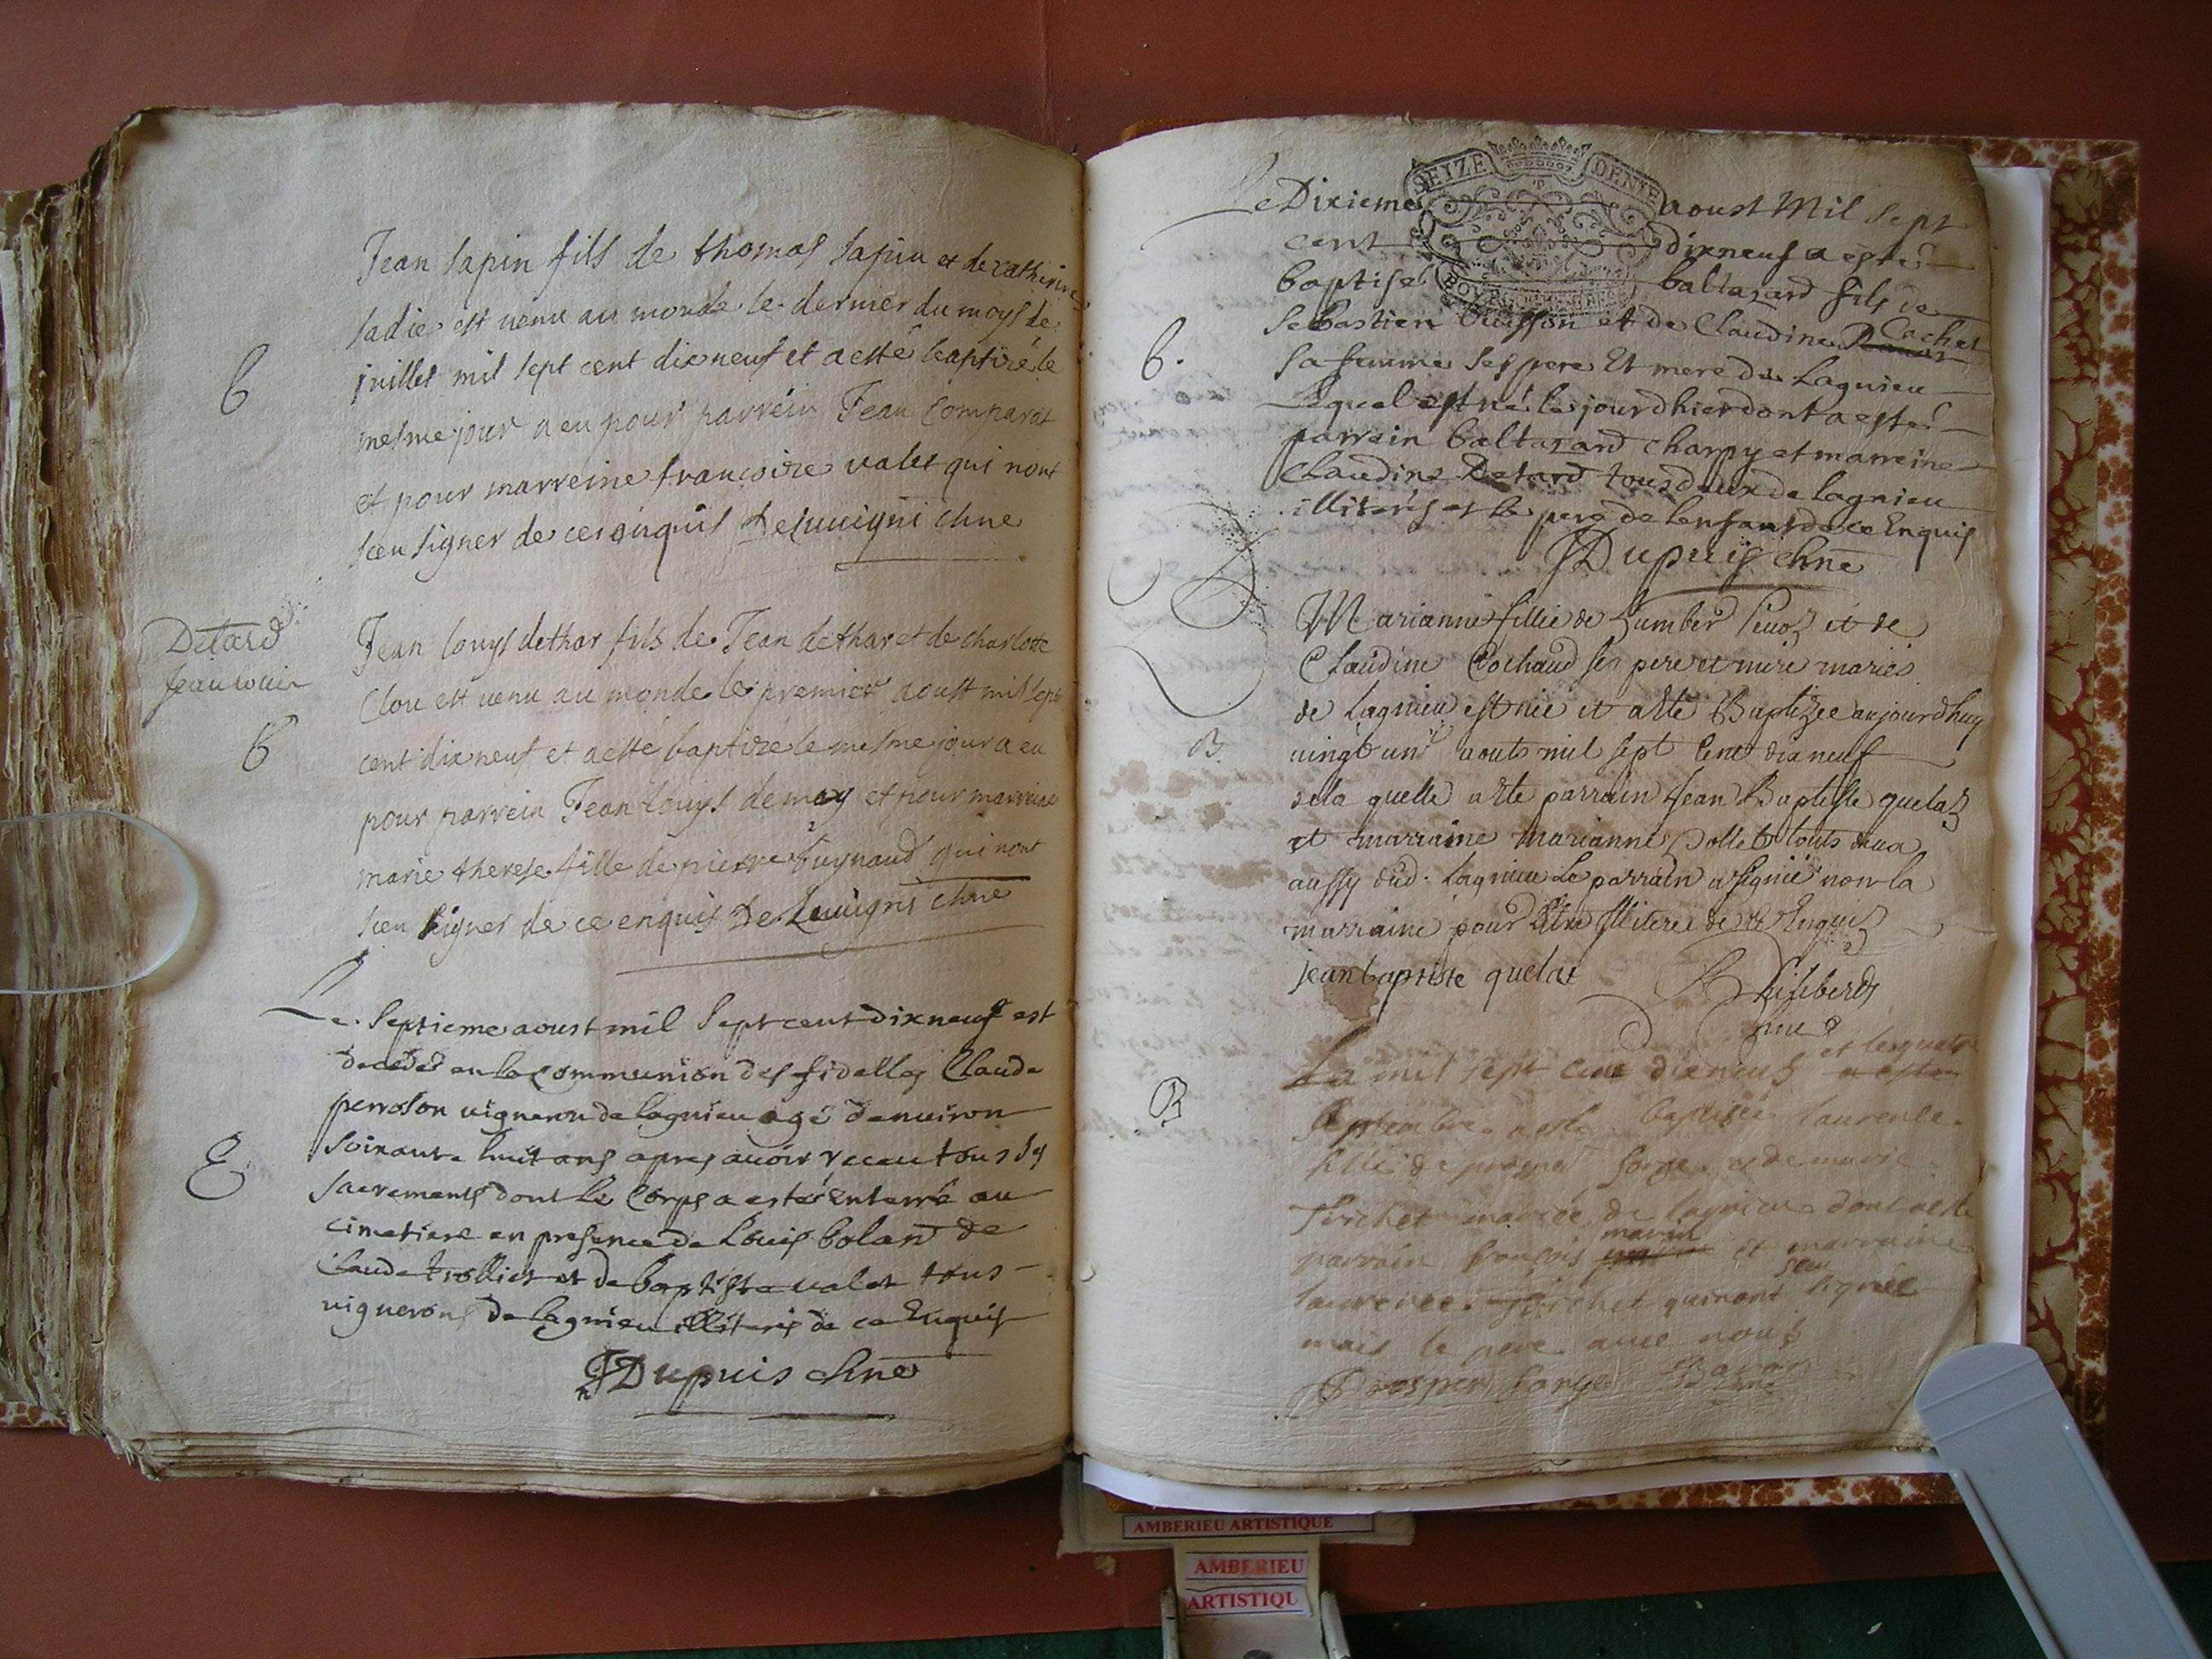 Jean sapin fils de thomas sapin et de catherine
sadie est venu au monde le dernier du moys de
juillet mil sept cent dixneuf et a esté baptizé le
mesme jour a eu pour parrein Jean Comparat
et pour marreine francoize valet qui nont
sceu signer de ce enquis chne
B
Detard
Jean louis
Jean louys dethar fils de Jean dethar et de charlotte
Clou est venu au monde le premier aoust mil sept
cent dixneuf et a esté baptizé le mesme jour a eu
pour parrein Jean louys demay et pour marreine
marie therese fille de pierre qui nont
sceu signer de ce enquis chne
B
Le Septieme aoust mil Sept cent dixneuf est
decedé en la communion des fidelles Claude
vigneron de lagnieu agé denviron
Soixante huit ans apres avoir receu tous les
sacrements dont le Corps a estér Enterré au
cimetiere en presence de Louis bolard de
Claude trolliet et de baptiste valet tous
vignerons de lagnieu illiterés de ce Enquis
E
Dupuis chne
SEIZE DENIE
Le Dixieme aoust Mil Sept
cent dixneuf a esté
baptisé baltazard fils de
Sebastien et de Claudine Cachet
sa femme ses pere Et mere de Lagnieu
Lequel est né le jourdhier dont a esté
parrein baltazard charpy et marreine
Claudine Detard tous deux de lagnieu
illiterés et le pere de lenfant de ce Enquis
B.
Dupuis chne
Marianne fillie de humber et de
Claudine Cochaud ses pere et mere mariés
de Lagnieu est née et a été Baptizee aujourdhuy
vingt un aouts mil sept Cent dix neuf
de la quelle a été parrain Jean Baptiste quelaz
et marraine Marianne touts deux
aussy dud. Lagnieu Le parrain a signé non la
marraine pour être Illiteree de ce Enquis
B.
jean baptiste quelat
Lan mil sept cent dixneuf et le quatre
septembre a esté baptisée laurence
fillie de prosper forge et de marie
perichet mariés de lagnieu dont a esté
parrain françois marin et marraine
laurence perichet qui nont sceu signer
mais le pere avec nous
B
Prosper forge
AMBERIEU ARTISTIQUE
AMBERIEU
ARTISTIQU